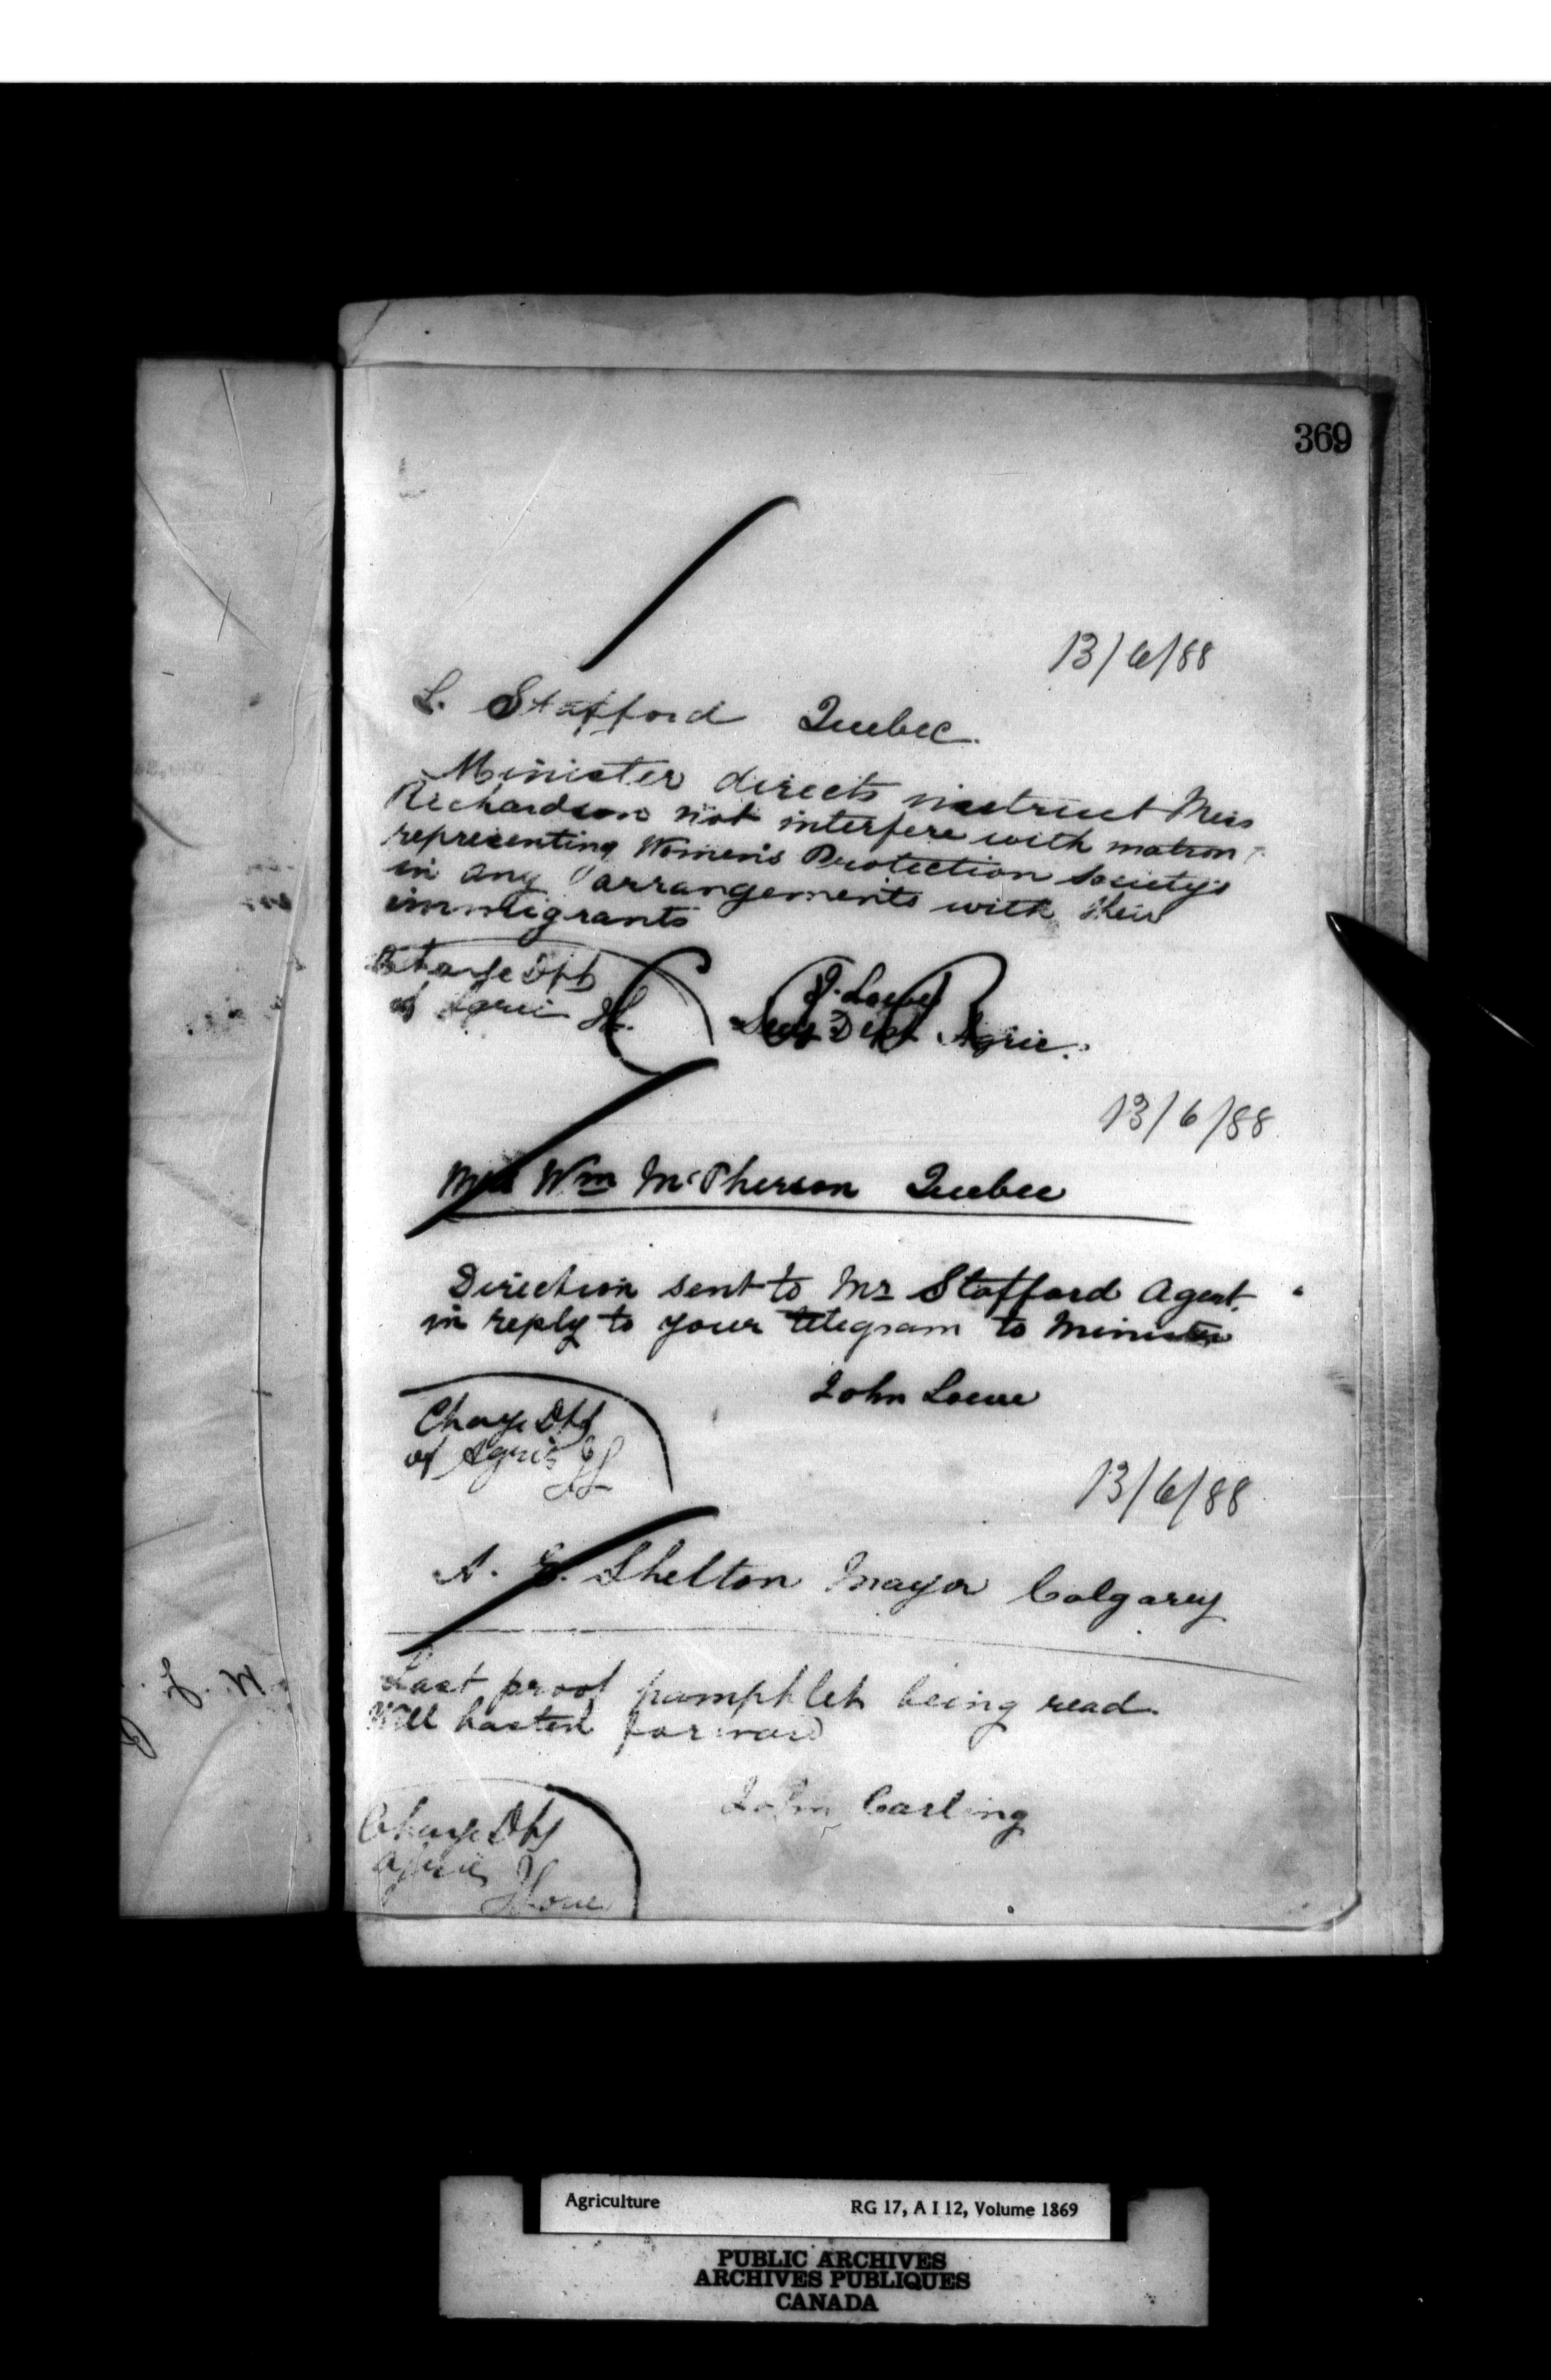 369
13/6/88
L. Stafford Quebec
Minister directs instruct Miss
Richardson not interfere with matron
representing Women's Protection Society's
in any arrangements with their
immigrants
Charge Dpt
of Agric JL.
J. Lowe
Secy Dept Agric.
13/6/88
Mrs Wm McPherson Quebec
Direction sent to Mr Stafford Agent
in reply to your telegram to Minister
John Lowe
Charge Dpt
of Agric JL
13/6/88
A. E. Shelton Mayor Calgary
Last proof pamphlet being read
Will hasten forward
John Carling
Charge Dpt
Agric
J Lowe
Agriculture RG 17, A I 12, Volume 1869
PUBLIC ARCHIVES
ARCHIVES PUBLIQUES
CANADA